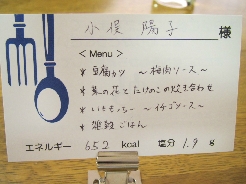 小俣 陽子 様
<Menu>
* 豆腐カツ ～梅肉ソース～
* 菜の花とたけのこの炊き合わせ
* いももっちー ～イチゴソース～
* 雑穀ごはん
エネルギー 652 kcal 塩分 1.9 g